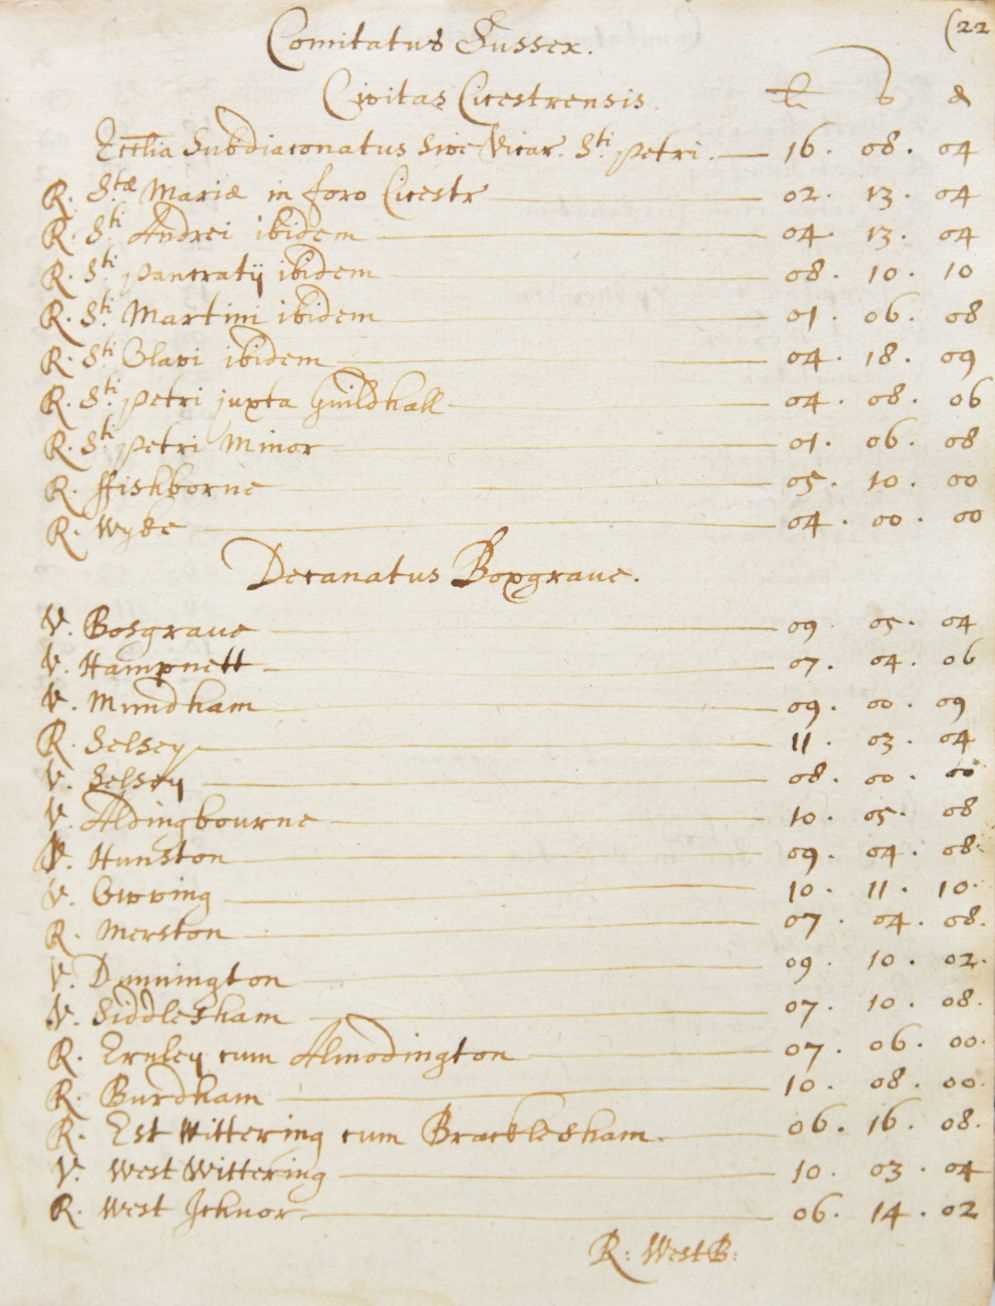 (22
Comitatus Sussex.
Civitas Cicestrensis. £ s d
Ecclia Subdiaconatus sive Vicar. Sti petri. 16. 08. 04
R. Stæ Mariæ in foro Cicestr 02. 13. 04
R. Sti Andrei ibidem 04. 13. 04
R. Sti pancratij ibidem 08. 10. 10
R. Sti Martini ibidem 01. 06. 08
R. Sti Olavi ibidem 04. 18. 09
R. Sti petri juxta Guildhall 04. 08. 06
R. Sti petri Minor 01. 06. 08
R. ffishborne 05. 10. 00
R. Wyke 04. 00. 00
Decanatus Boxgrave.
V. Bosgraue 09. 05. 04
V. Hampnett 07. 04. 06
V. Mundham 09. 00. 09
R. Selsey 11. 03. 04
V. Selsey 08. 00. 00
V. Aldingbourne 10. 05. 08
V. Hunston 09. 04. 08.
V. Oving 10. 11. 10.
R. Merston 07. 04. 08.
V. Dunnington 09. 10. 02.
V. Siddlesham 07. 10. 08.
R. Ernley cum Almodington 07. 06. 00.
R. Burdham 10. 08. 00.
R. Est Wittering cum Bracklesham. 06. 16. 08.
V. West Wittering 10. 03. 04
R. West Ichnor 06. 14. 02
R: West B: